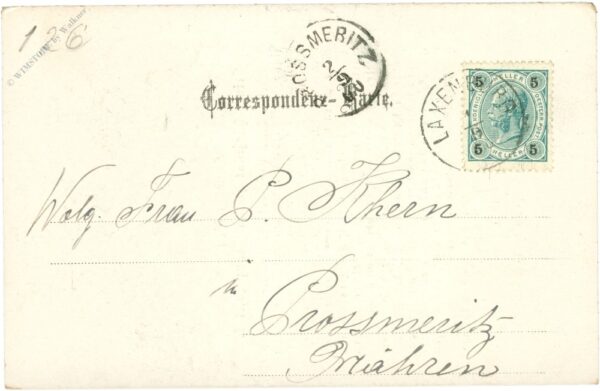 136
© WIMSTORE by Walkner
PROSSMERITZ
2/5 02
Correspondenz-Karte.
LAXENBURG
5 HELLER 5
5 HELLER 5
Wolg. Frau P. Khern
in
Prossmeritz
Mähren